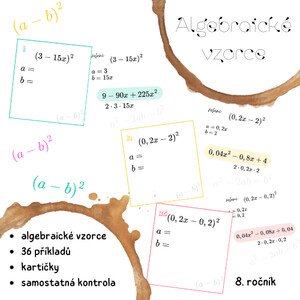 Algebraické
vzorce
(a − b)²
1)
(3 − 15x)²
a =
b =
řešení:
(3 − 15x)²
a = 3
b = 15x
9 − 90x + 225x²
2 · 3 · 15x
(a − b)²
2)
(0,2x − 2)²
a =
b =
řešení:
(0,2x − 2)²
a = 0,2x
b = 2
0,04x² − 0,8x + 4
2 · 0,2x · 2
(a − b)²
(0,2x − 0,2)²
a =
b =
řešení:
(0,2x − 0,2)²
a = 0,2x
b = 0,2
0,04x² − 0,08x + 0,04
2 · 0,2x · 0,2
• algebraické vzorce
• 36 příkladů
• kartičky
• samostatná kontrola
8. ročník